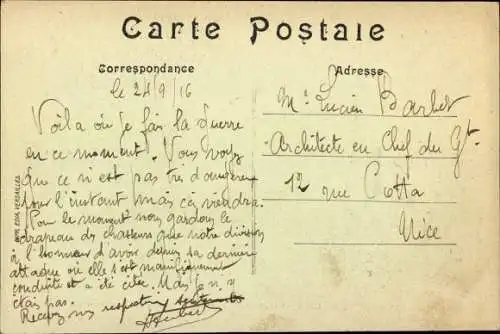 Carte Postale
Correspondance
Adresse
le 24/9/16
Voilà où je fais la guerre
en ce moment. Vous voyez
que ce n'est pas très dangereux
pour l'instant mais ça viendra.
Pour le moment nous gardons le
drapeau des chasseurs que notre division
à l'honneur d'avoir depuis sa dernière
attaque où elle s'est magnifiquement
conduite et a été citée. Mais je n'y
étais pas.
Recevez mes respectueux
Mr Lucien Barbet
Architecte en Chef du Gt
12 rue Cotta
Nice